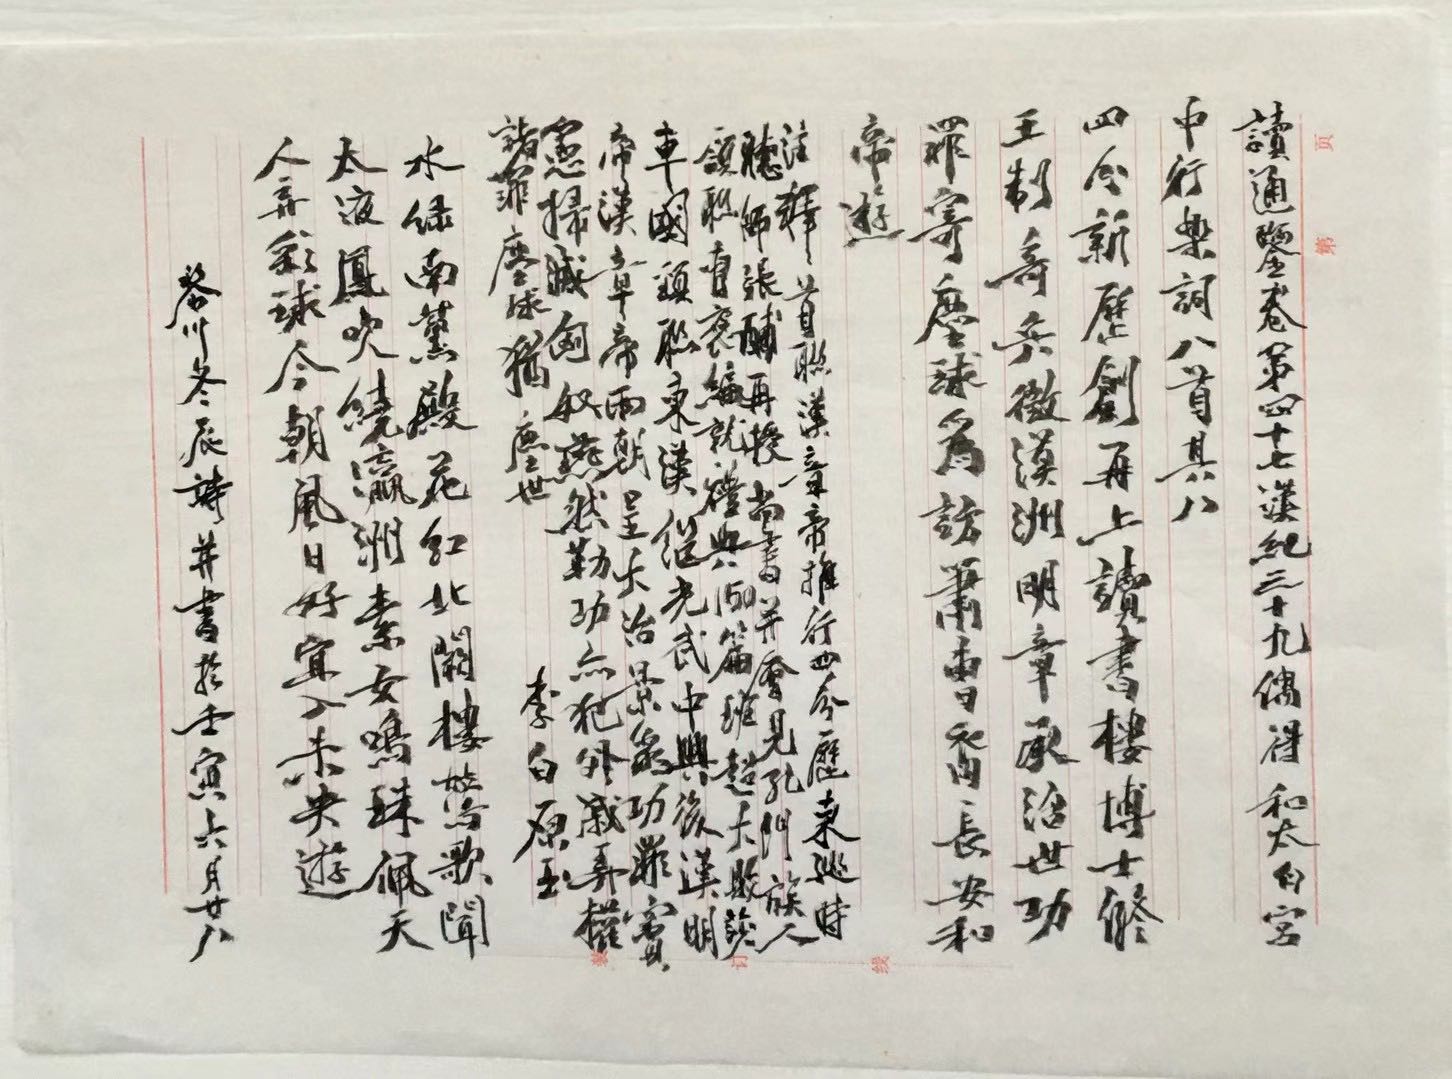 讀通鑒卷第四十七漢紀三十九偶得 和太白宮
中行樂詞八首其八
四分新歷創再上讀書樓博士修
王制奇兵徵漠洲明章承治世功
罪寄塵球為訪蕭曹丙長安和
帝遊
注釋首聯漢章帝推行四分歷東巡時
聽師張酺再授尚書并會見孔門族人
頷聯曹褒編就禮典150篇班超大敗莎
車國頸聯東漢繼光武中興後漢明
帝漢章帝兩朝呈大治景象功罪竇
憲掃滅匈奴燕然勒功亦犯外戚弄權
諸罪塵球猶塵世
李白原玉
水綠南薰殿花紅北闕樓鶯歌聞
太液鳳吹繞瀛洲素女鳴珠佩天
人弄彩球今朝風日好宜入未央遊
冬辰詩并書於壬寅六月廿八
页
第
订
线